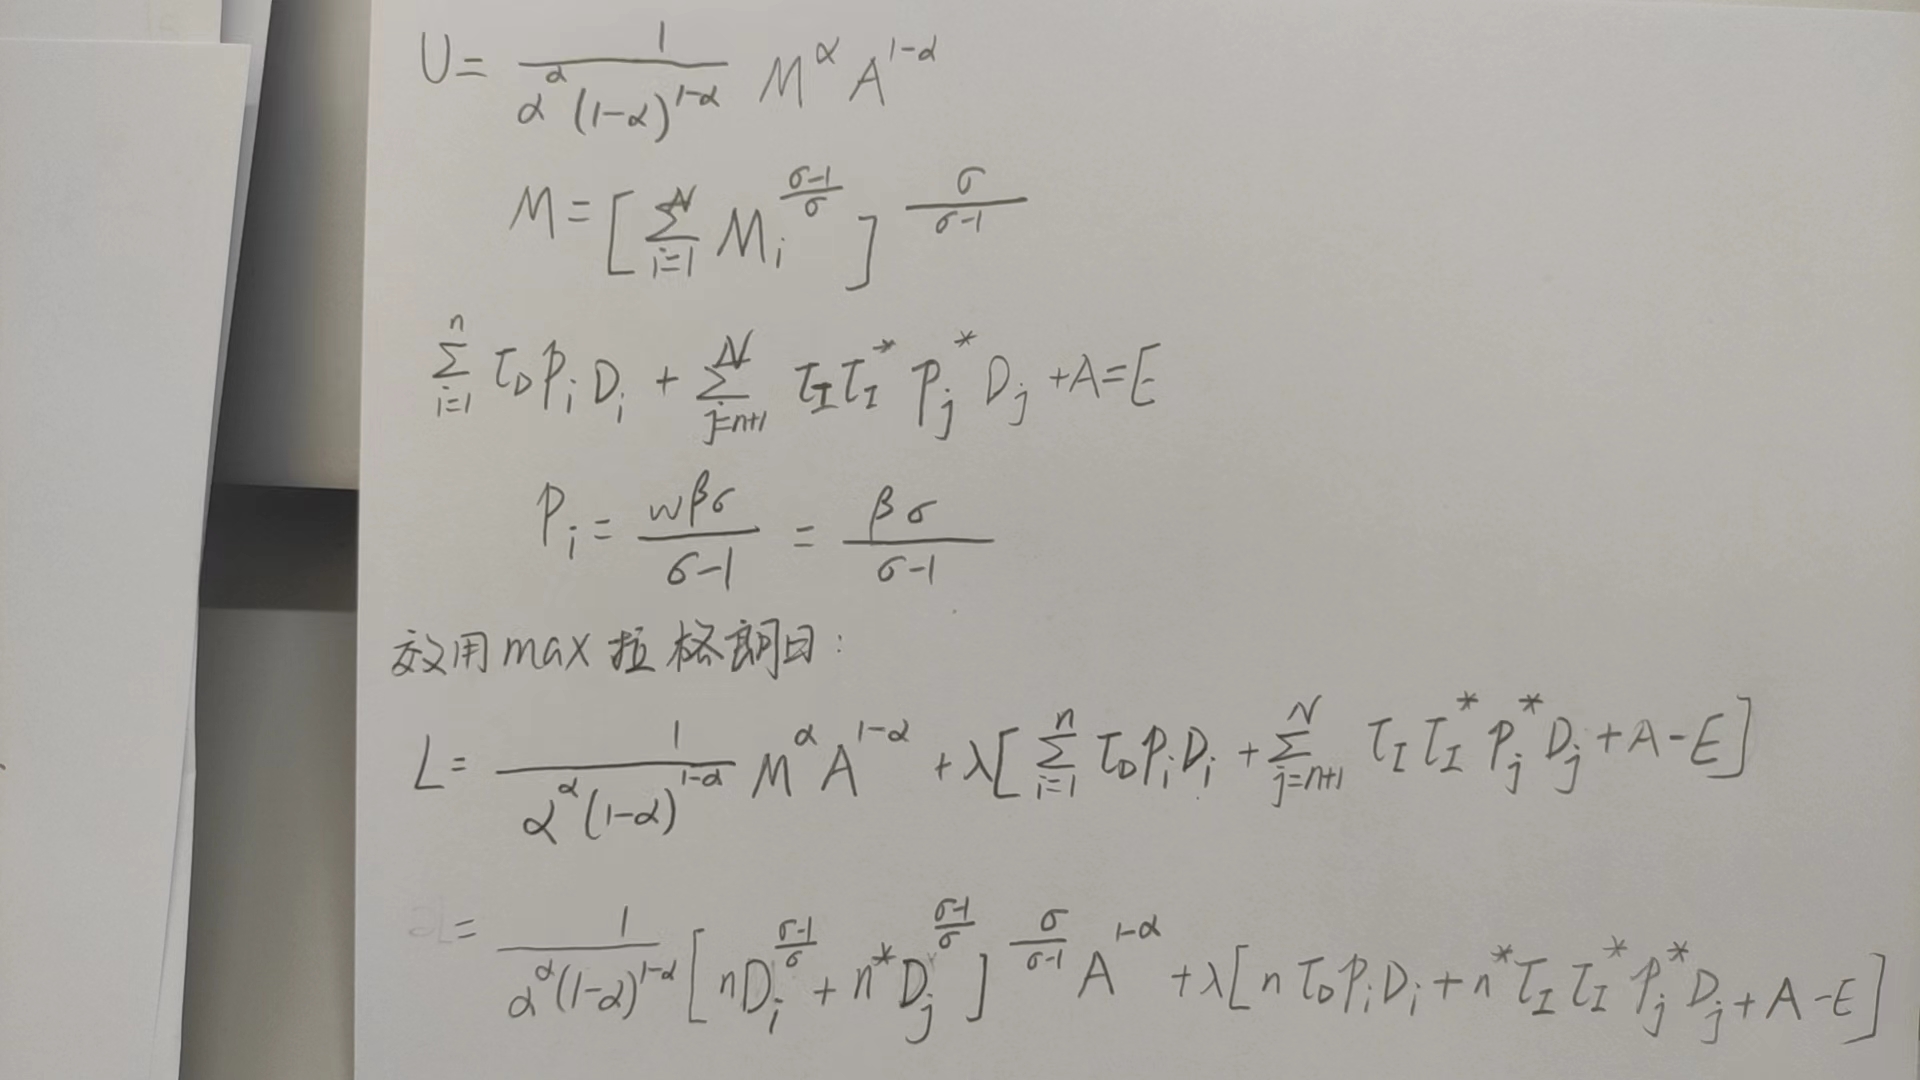 U = \frac{1}{α^α (1-α)^{1-α}} M^α A^{1-α}
M = [ \sum_{i=1}^{N} M_i^{\frac{σ-1}{σ}} ]^{\frac{σ}{σ-1}}
\sum_{i=1}^{n} τ_D P_i D_i + \sum_{j=n+1}^{N} τ_I τ_I^* P_j^* D_j + A = E
P_i = \frac{wβσ}{σ-1} = \frac{βσ}{σ-1}
效用max拉格朗日:
L = \frac{1}{α^α (1-α)^{1-α}} M^α A^{1-α} + λ[ \sum_{i=1}^{n} τ_D P_i D_i + \sum_{j=n+1}^{N} τ_I τ_I^* P_j^* D_j + A - E ]
= \frac{1}{α^α (1-α)^{1-α}} [ n D_i^{\frac{σ-1}{σ}} + n^* D_j^{\frac{σ-1}{σ}} ]^{\frac{σ}{σ-1}} A^{1-α} + λ[ n τ_D P_i D_i + n^* τ_I τ_I^* P_j^* D_j + A - E ]